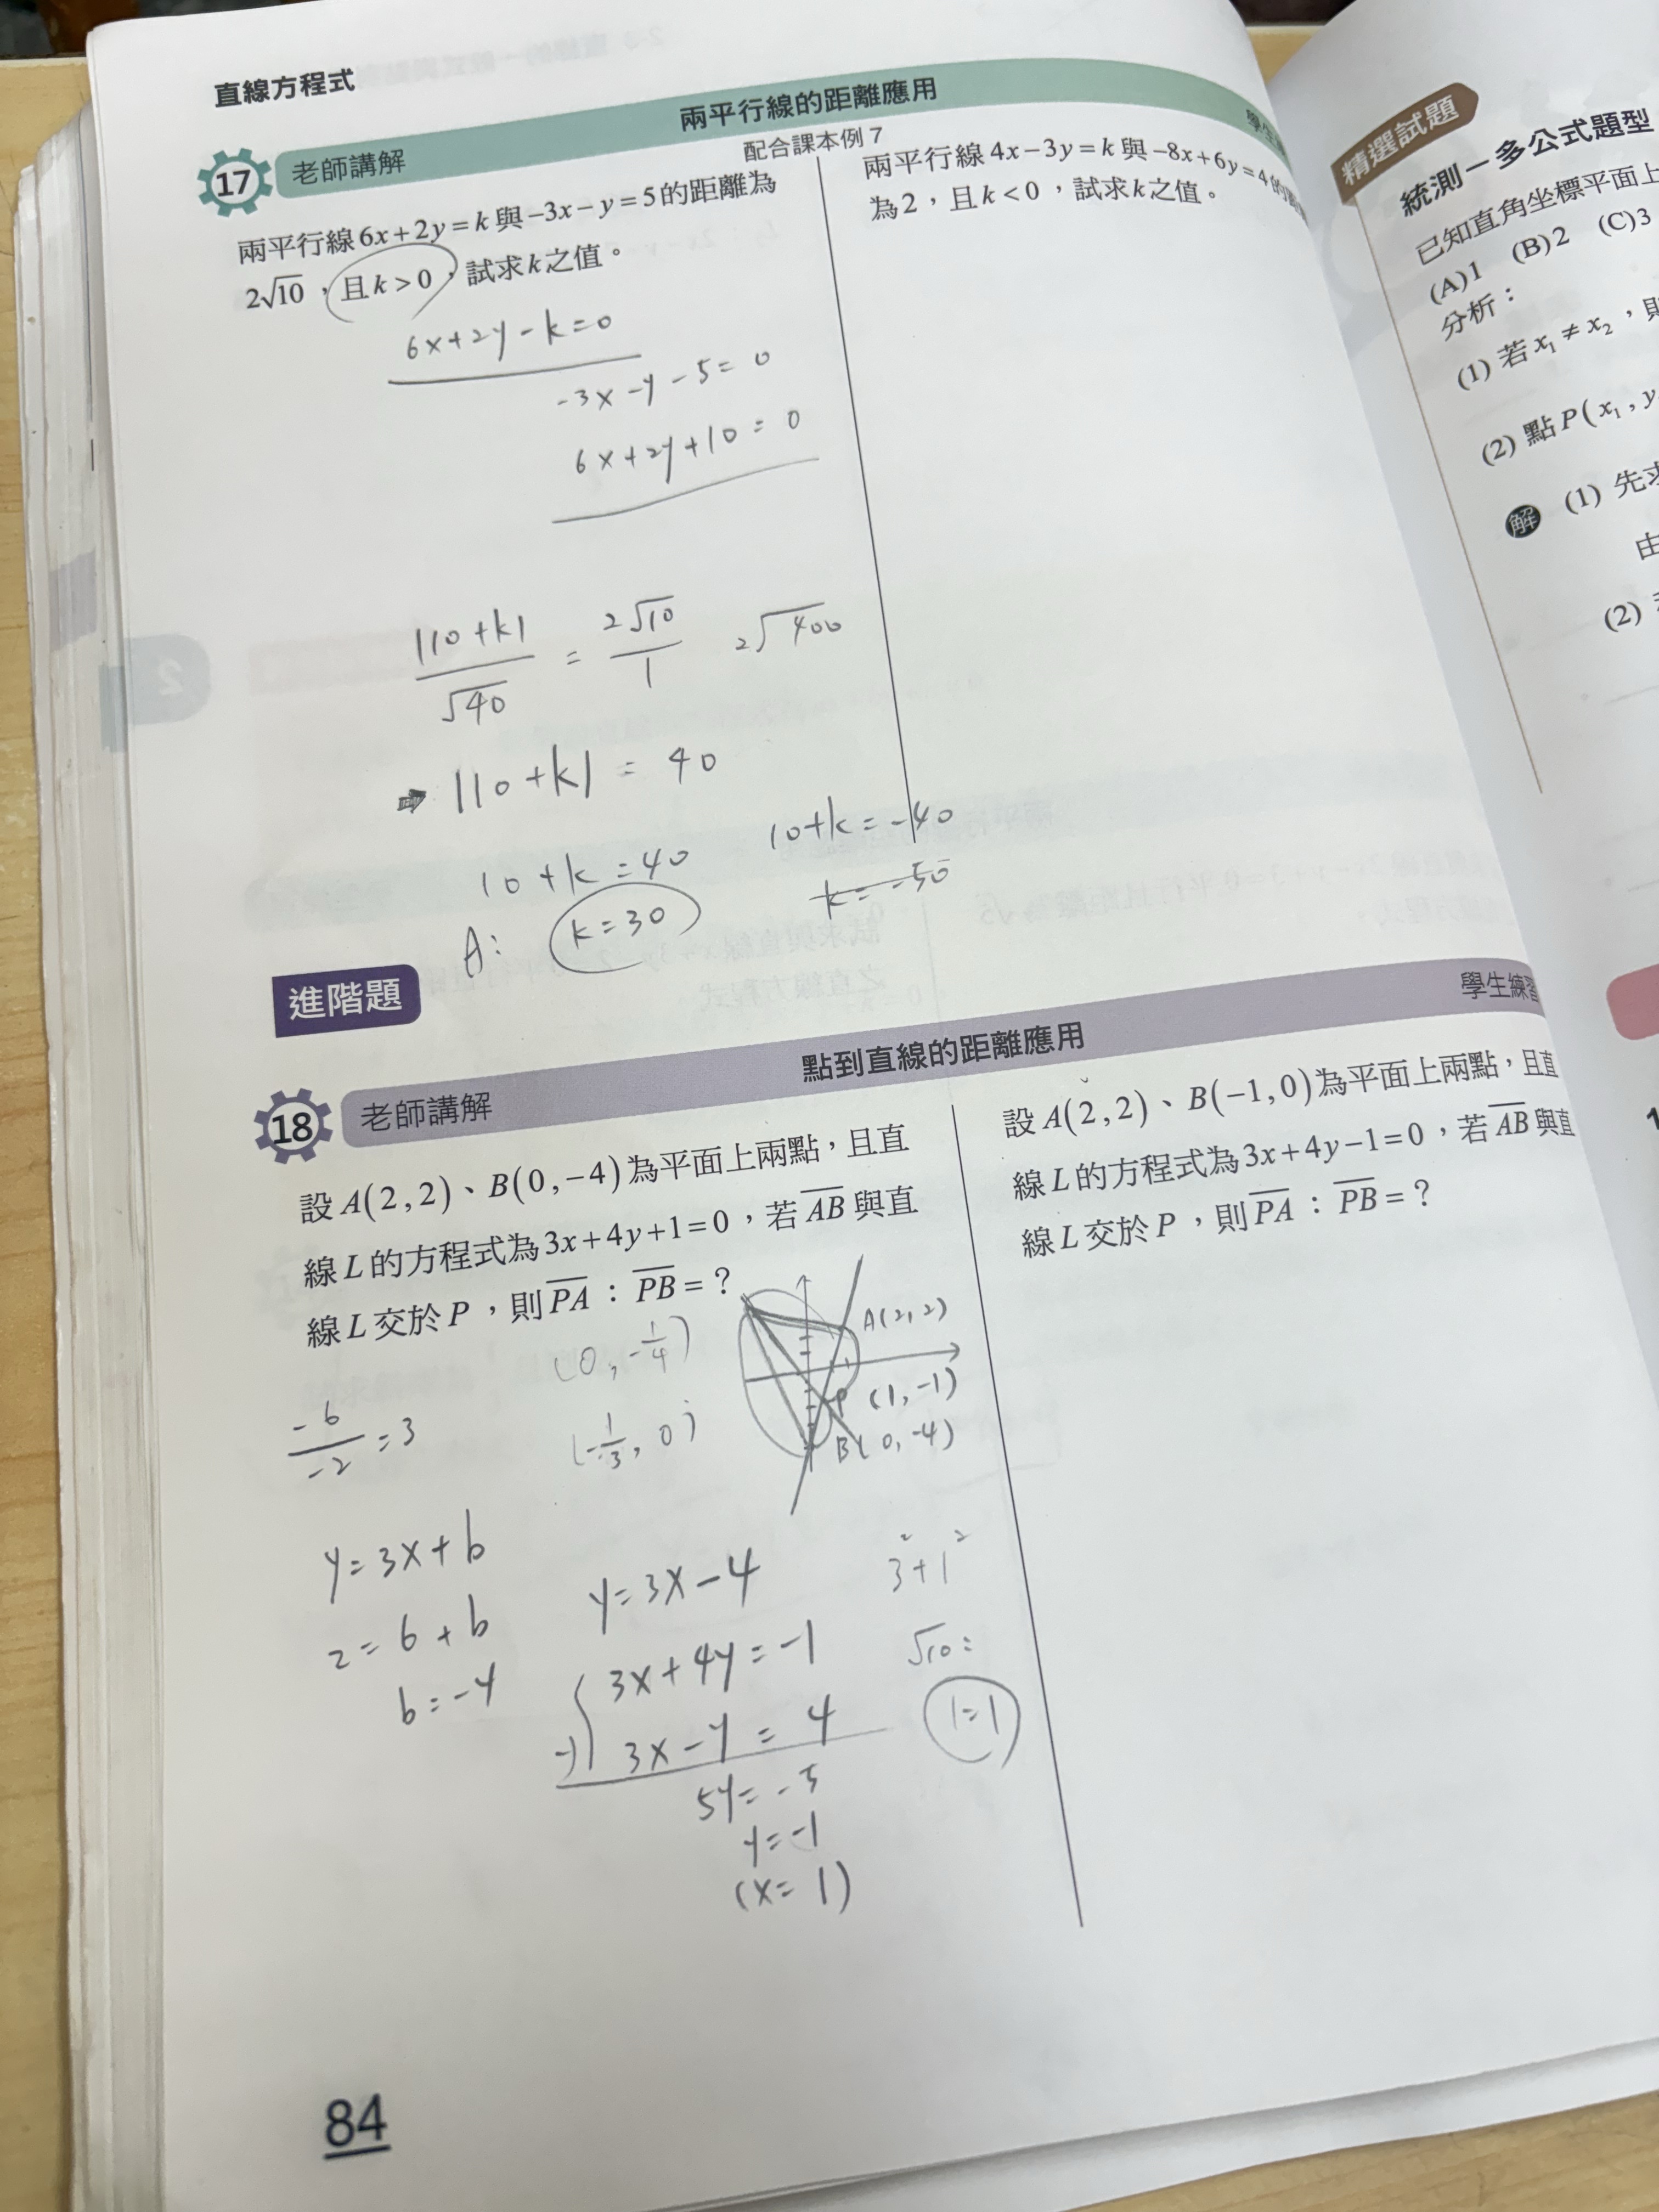 直線方程式
兩平行線的距離應用
配合課本例 7
17 老師講解
兩平行線 6x+2y=k 與 −3x−y=5 的距離為
2√10，且 k>0，試求 k 之值。
6x+2y-k=0
-3x-y-5=0
6x+2y+10=0
|10+k|/√40 = 2√10/1
2√400
⇒ |10+k| = 40
10+k=40
10+k=-40
A: k=30
k=-50
兩平行線 4x−3y=k 與 −8x+6y=4 的
為 2，且 k<0，試求 k 之值。
進階題
學生練習
點到直線的距離應用
18 老師講解
設 A(2,2)、B(0,−4) 為平面上兩點，且直
線 L 的方程式為 3x+4y+1=0，若 AB 與直
線 L 交於 P，則 PA：PB=？
(0, -1/4)
(-1/3, 0)
A(2,2)
P (1,-1)
B(0,-4)
-6/-2=3
y=3x+b
2=6+b
b=-4
y=3x-4
3x+4y=-1
-) 3x-y=4
5y=-5
y=-1
(x=1)
3²+1²
√10:
1=1
設 A(2,2)、B(−1,0) 為平面上兩點，且直
線 L 的方程式為 3x+4y−1=0，若 AB 與直
線 L 交於 P，則 PA：PB=？
84
精選試題
統測－多公式題型
已知直角坐標平面上
(A)1 (B)2 (C)3
分析：
(1) 若 x₁≠x₂，則
(2) 點 P(x₁, y
解 (1) 先求
由
(2)